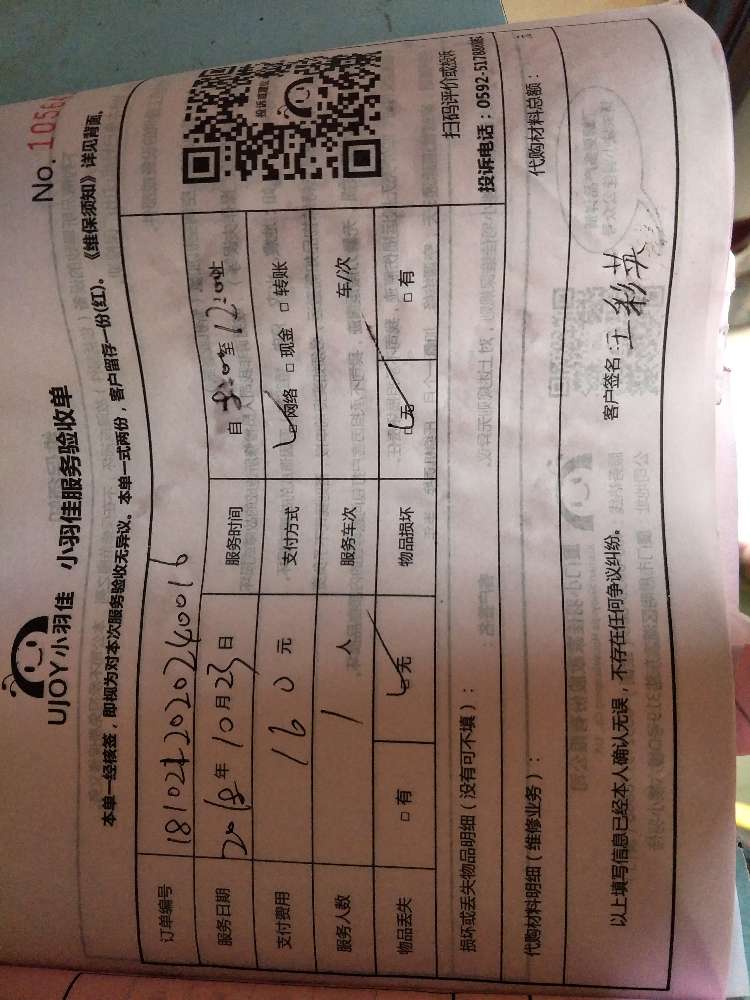 UJOY小羽佳 小羽佳服务验收单
No. 1056
本单一经核签，即视为对本次服务验收无异议。本单一式两份，客户留存一份(红)。《维保须知》详见背面。
订单编号
服务日期 2018年10月23日 服务时间 自 8:00至12:00止
支付费用 160元 支付方式 网络 □现金 □转账
服务人数 1人 服务车次 车/次
物品丢失 □有 无 物品损坏 无 □有
扫码评价或投诉
投诉电话：0592-5178
损坏或丢失物品明细（没有可不填）：
代购材料明细（维修业务）： 代购材料总额：
以上填写信息已经本人确认无误，不存在任何争议纠纷。 客户签名：彩英